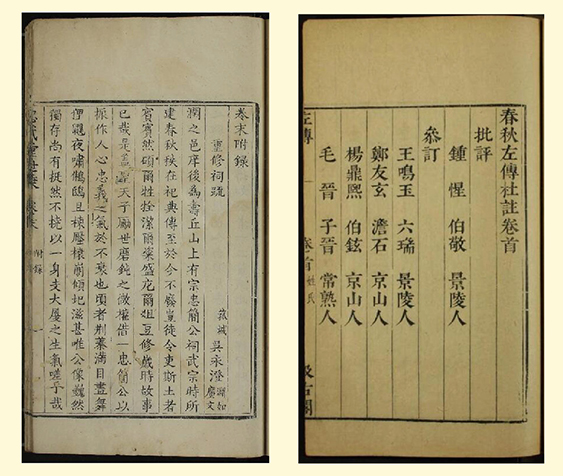 卷末附錄
重修祠疏
菰城 吳永澄
潤之邑庠後為壽丘山上有宗忠簡公祠武宗時所
建春秋秩在祀典傳至於今不廢豈徒令吏斯土者
賓賓然碩爾牲拴潔爾粢盛庀爾俎豆修歲時故事
已哉是蓋 天子勵世磨鈍之微權借一忠簡公以
振作人心忠義之氣於不衰也頃者荆蓁滿目晝舞
鼯夜嘯鵂鶹且棟壓榱崩傾圮滋甚唯公像巍然
獨存尚有挺然不撓以一身支大厦之生氣嗟乎哉
附錄
春秋左傳杜註卷首
批評
鍾惺 伯敬 景陵人
叅訂
王鳴玉 六瑞 景陵人
鄭友玄 澹石 京山人
楊鼎熙 伯鉉 京山人
毛晉 子晉 常熟人
左傳 卷首 姓氏
汲古閣